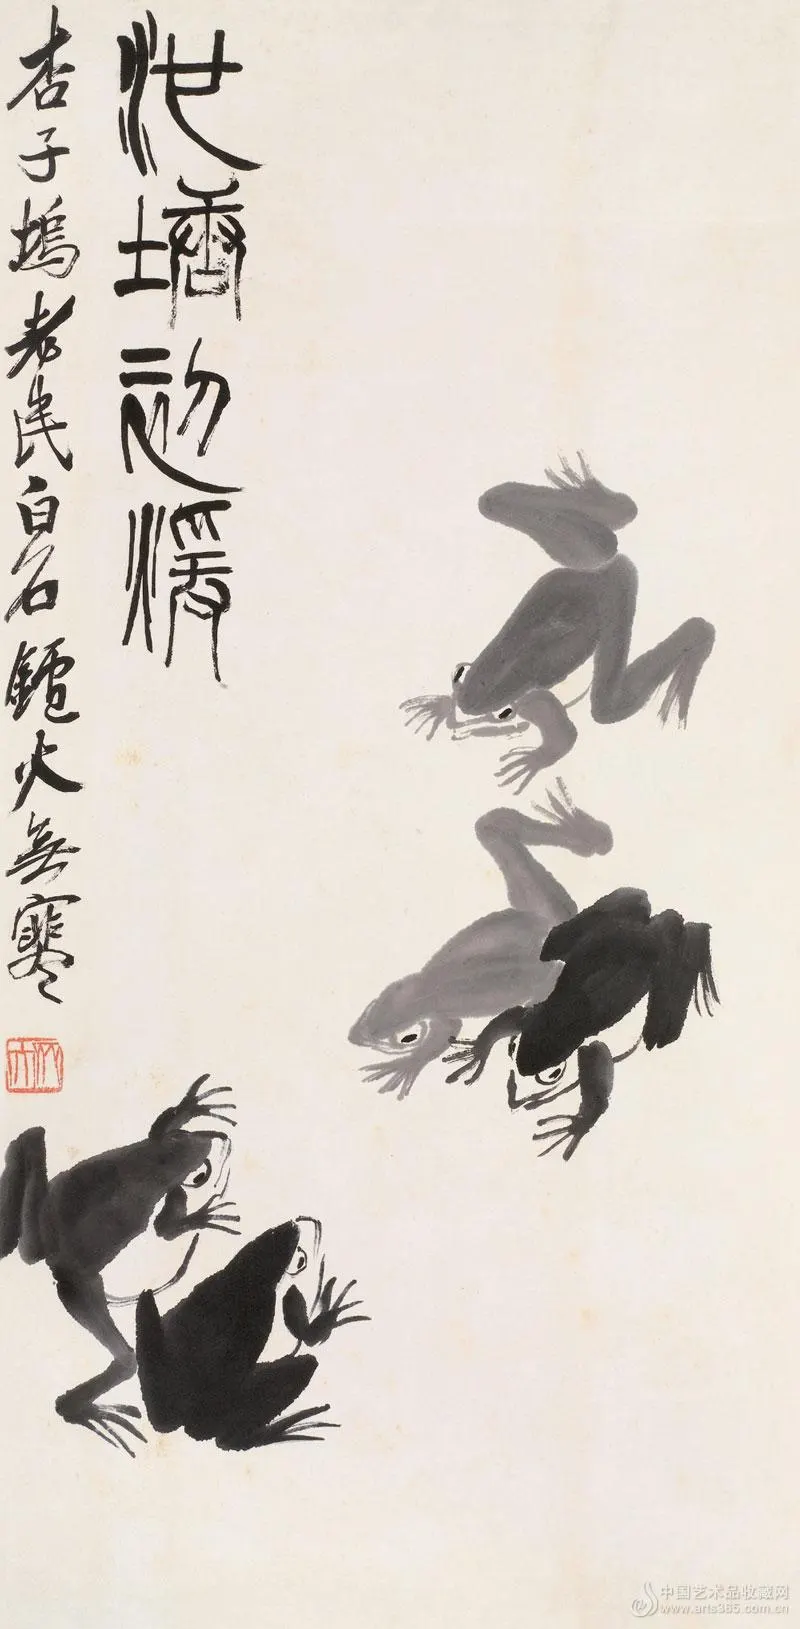 池塘初煖
杏子塢老民白石鑪火無寒
中国艺术品收藏网
www.arts365.com.cn